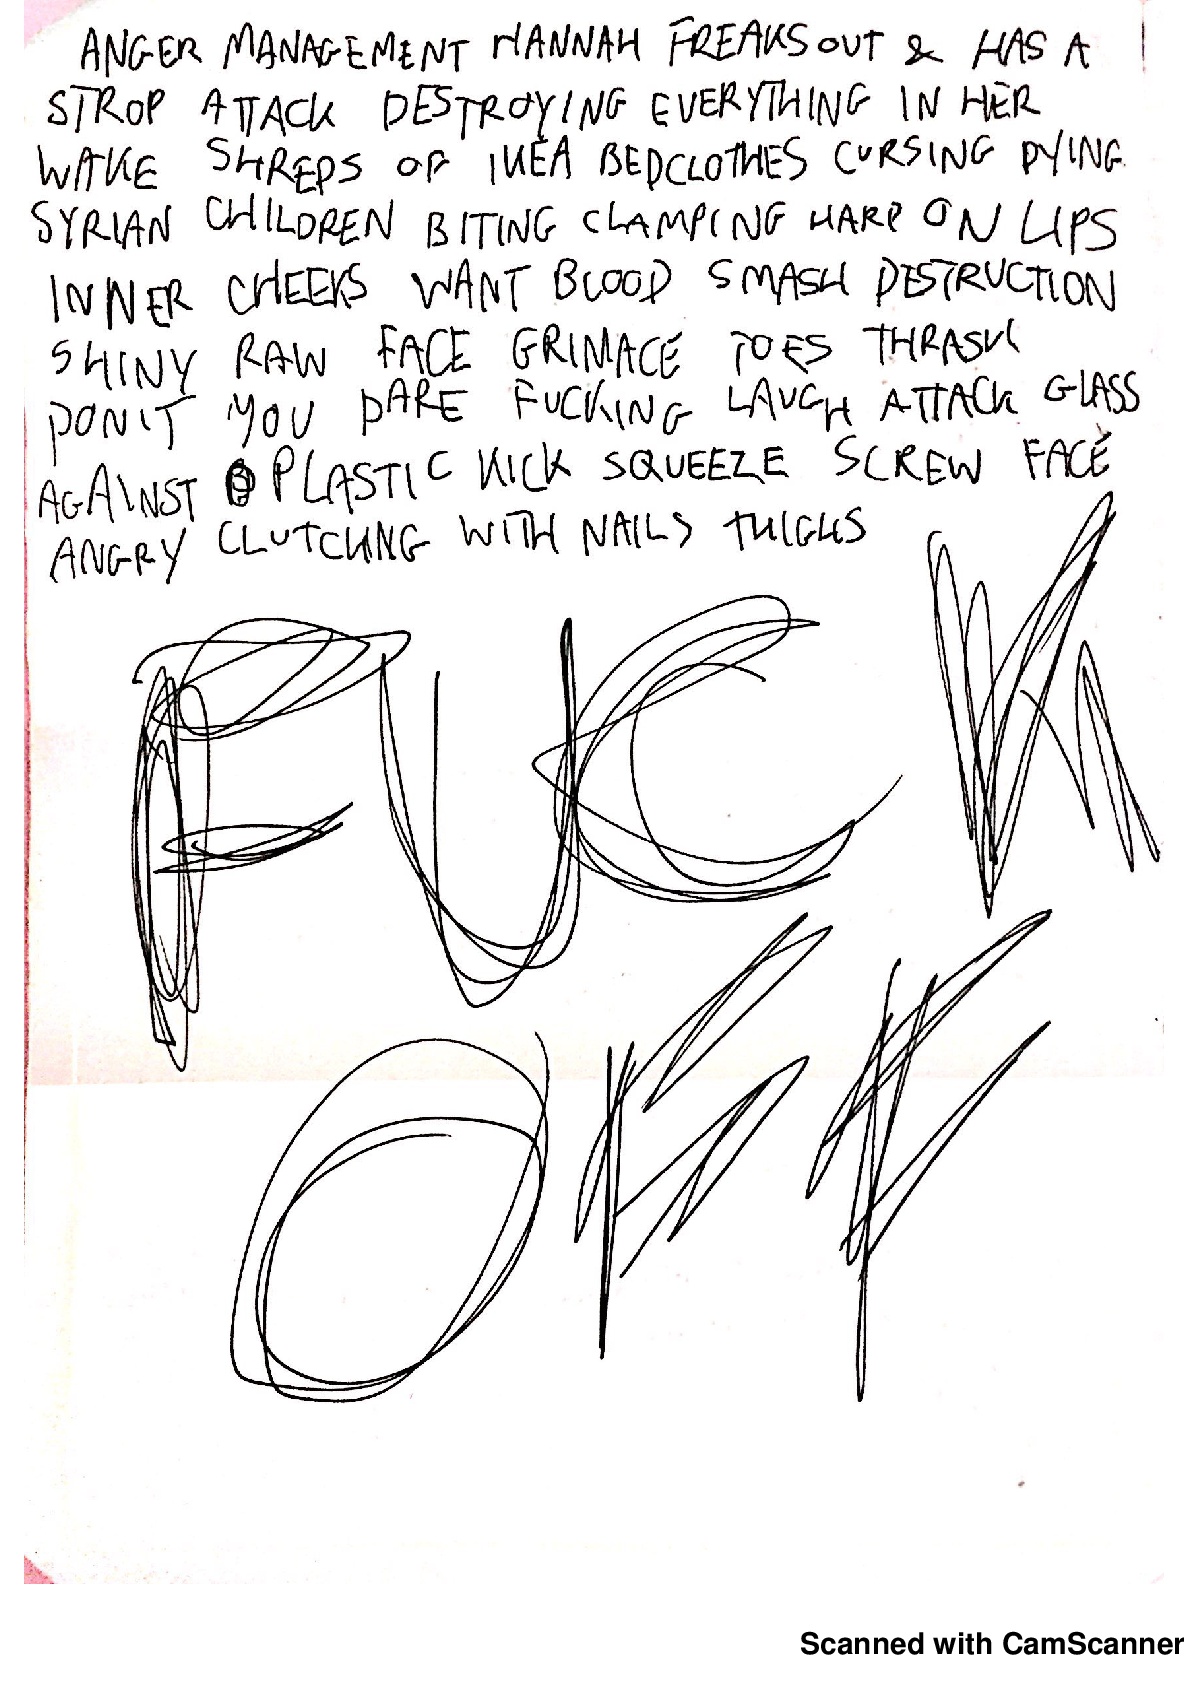 ANGER MANAGEMENT HANNAH FREAKS OUT & HAS A
STROP ATTACK DESTROYING EVERYTHING IN HER
WAKE SHREDS OF IKEA BEDCLOTHES CURSING DYING
SYRIAN CHILDREN BITING CLAMPING HARD ON LIPS
INNER CHEEKS WANT BLOOD SMASH DESTRUCTION
SHINY RAW FACE GRIMACE TOES THRASH
DON'T YOU DARE FUCKING LAUGH ATTACK GLASS
AGAINST PLASTIC KICK SQUEEZE SCREW FACE
ANGRY CLUTCHNG WITH NAILS THIGHS
FUCK
OFF
Scanned with CamScanner